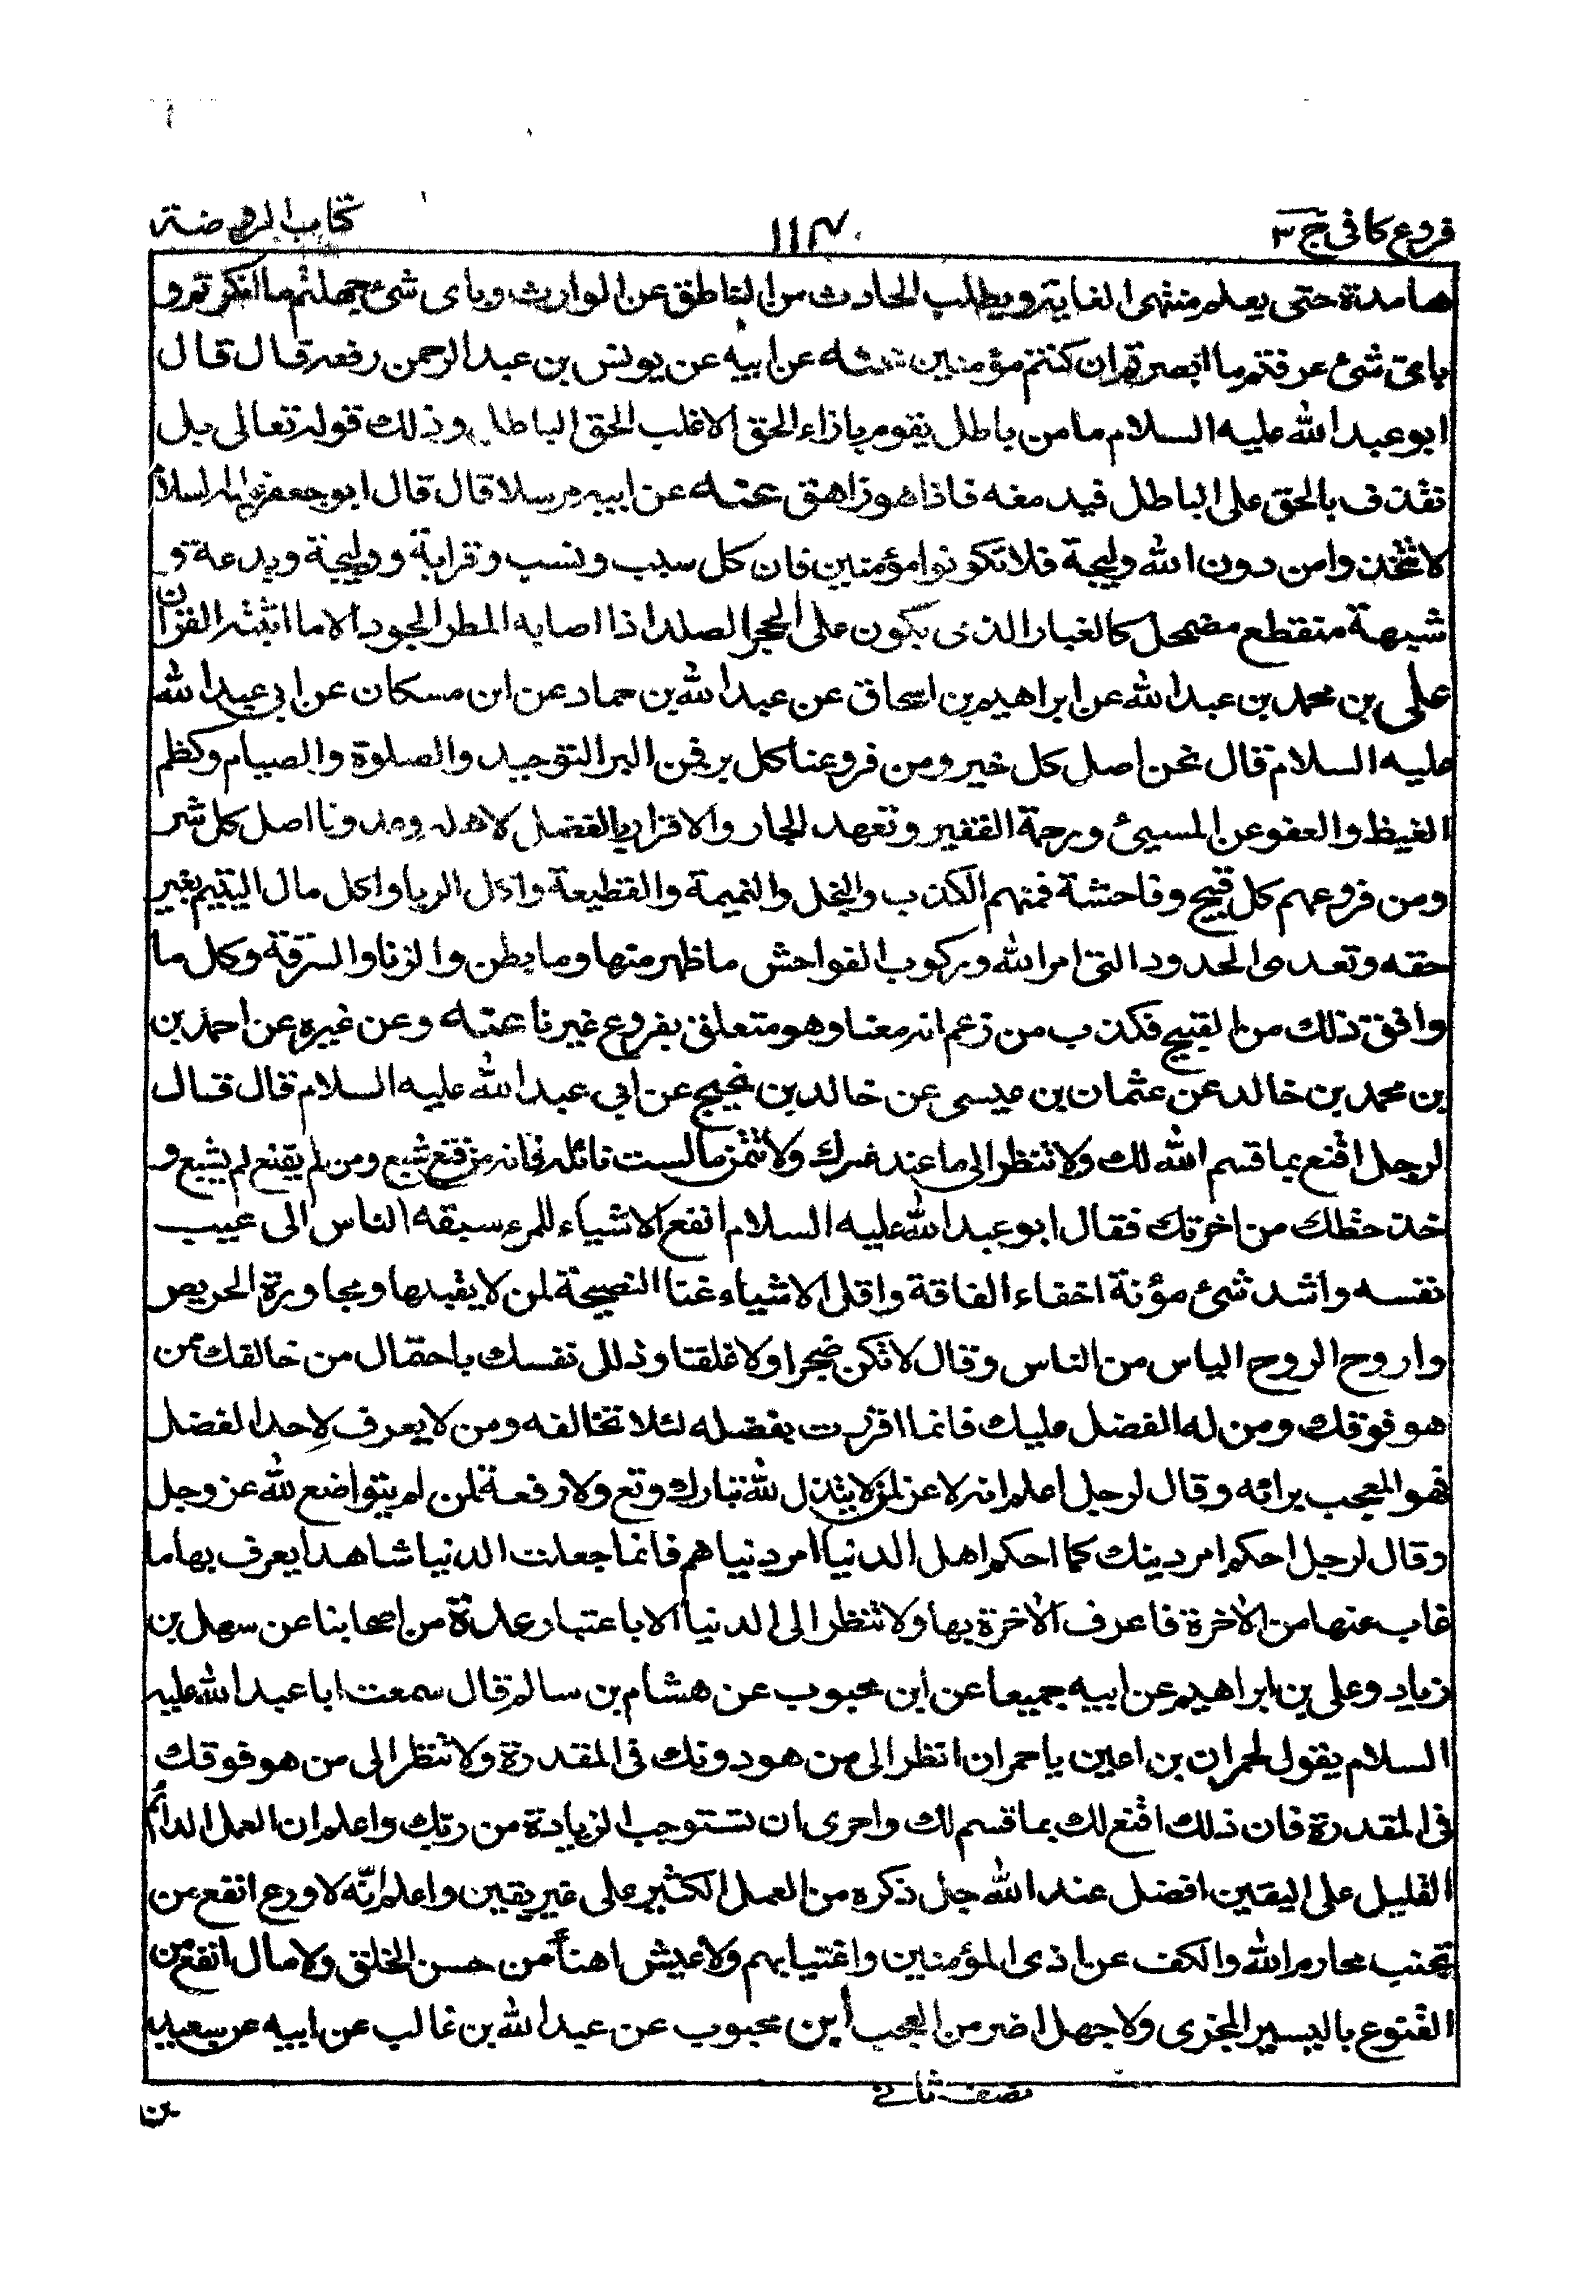 فروع كافى ج ٣
١١٤
كتاب الروضة
هامدة حتى يعلم منتهى الغاية ويطلب الحادث من الناطق عن الوارث وباى شئ جهلتم ما انكرتم و
باى شئ عرفتم ما ابصرتم ان كنتم مؤمنين عنه عن ابيه عن يونس بن عبد الرحمن رفعه قال قال
ابو عبد الله عليه السلام ما من باطل يقوم بازاء الحق الا غلب الحق الباطل وذلك قوله تعالى بل
نقذف بالحق على الباطل فيدمغه فاذا هو زاهق عنه عن ابيه مرسلا قال قال ابو جعفر عليه السلام
لا تتخذوا من دون الله وليجة فلا تكونوا مؤمنين فان كل سبب ونسب وقرابة ووليجة وبدعة و
شبهة منقطع مضمحل كالغبار الذى يكون على الحجر الصلد اذا اصابه المطر الجود الا ما اثبته القران
على بن محمد بن عبد الله عن ابراهيم بن اسحاق عن عبد الله بن حماد عن ابن مسكان عن ابى عبد الله
عليه السلام قال نحن اصل كل خير ومن فروعنا كل بر فمن البر التوحيد والصلوة والصيام وكظم
الغيظ والعفو عن المسيئ ورحمة الفقير وتعهد الجار والاقرار بالفضل لاهله وعدونا اصل كل شر
ومن فروعهم كل قبيح وفاحشة فمنهم الكذب والبخل والنميمة والقطيعة واكل الربا واكل مال اليتيم بغير
حقه وتعدى الحدود التى امر الله وركوب الفواحش ما ظهر منها وما بطن والزنا والسرقة وكل ما
وافق ذلك من القبيح فكذب من زعم انه معنا وهو متعلق بفروع غيرنا عنه وعن غيره عن احمد بن
بن محمد بن خالد عن عثمان بن عيسى عن خالد بن نجيح عن ابى عبد الله عليه السلام قال قال
لرجل اقنع بما قسم الله لك ولا تنظر الى ما عند غيرك ولا تتمن ما لست نائله فانه من قنع شبع ومن لم يقنع لم يشبع و
خذ حظك من اخرتك فقال ابو عبد الله عليه السلام انفع الاشياء للمرء سبقه الناس الى عيب
نفسه واشد شئ مؤنة اخفاء الفاقة واقل الاشياء غنا النصيحة لمن لا يقبلها ومجاورة الحريص
واروح الروح الياس من الناس وقال لا تكن ضجرا ولا غلقا وذلل نفسك باحتمال من خالفك ممن
هو فوقك ومن له الفضل عليك فانما اقررت بفضله لئلا تخالفه ومن لا يعرف لاحد الفضل
فهو المعجب برائه وقال لرجل اعلم انه لا عز لمن لا يتذلل لله تبارك وتع ولا رفعة لمن لم يتواضع لله عز وجل
وقال لرجل احكم امر دينك كما احكم اهل الدنيا امر دنياهم فانما جعلت الدنيا شاهدا يعرف بها ما
غاب عنها من الاخرة فاعرف الاخرة بها ولا تنظر الى الدنيا الا باعتبار عدة من اصحابنا عن سهل بن
زياد وعلى بن ابراهيم عن ابيه جميعا عن ابن محبوب عن هشام بن سالم قال سمعت ابا عبد الله عليه
السلام يقول لحمران بن اعين يا حمران انظر الى من هو دونك فى المقدرة ولا تنظر الى من هو فوقك
فى المقدرة فان ذلك اقنع لك بما قسم لك واحرى ان تستوجب الزيادة من ربك واعلم ان العمل الدائم
القليل على اليقين افضل عند الله جل ذكره من العمل الكثير على غير يقين واعلم انّه لا ورع انفع من
تجنب محارم الله والكف عن اذى المؤمنين واغتيابهم ولا عيش اهنأ من حسن الخلق ولا مال انفع من
القنوع باليسير المجزى ولا جهل اضر من العجب ابن محبوب عن عبد الله بن غالب عن ابيه عن سعيد
نصف ثانى
بن